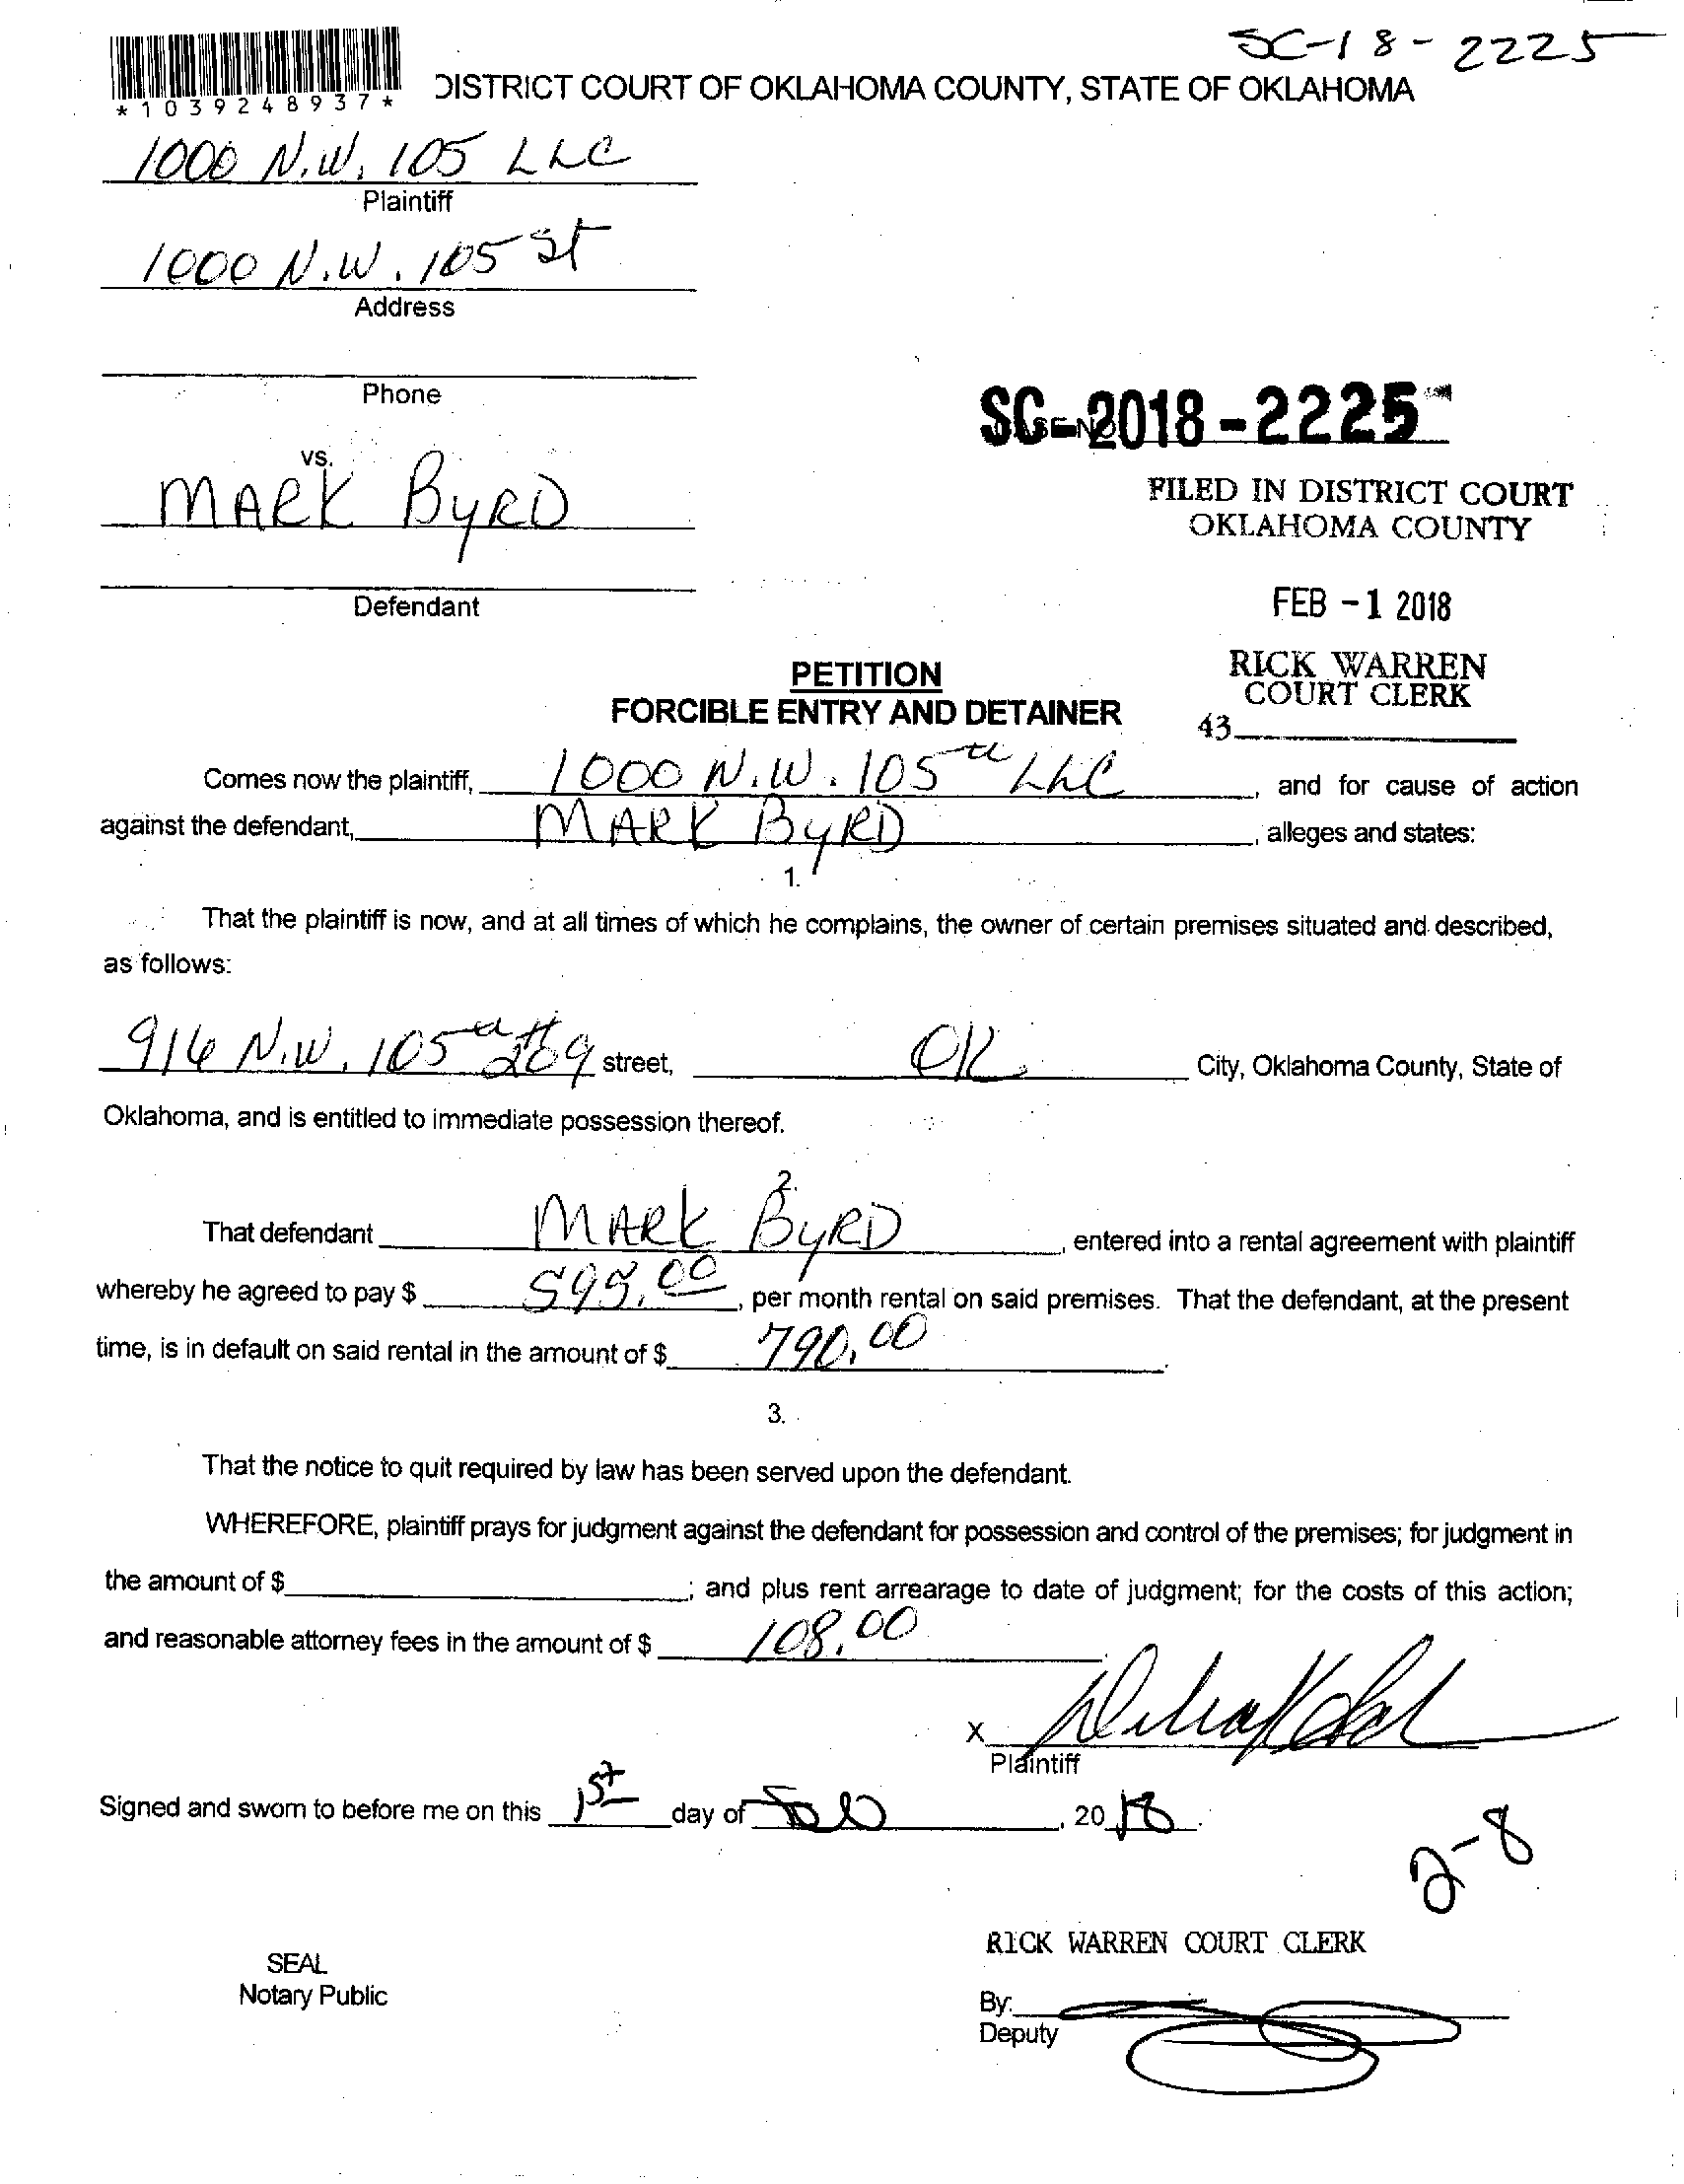 SC-18-2225
*1039248937*
DISTRICT COURT OF OKLAHOMA COUNTY, STATE OF OKLAHOMA
1000 N.W. 105 LLC
Plaintiff
1000 N.W. 105 St
Address
Phone
SC-2018-2225
vs.
MARK BYRD
FILED IN DISTRICT COURT
OKLAHOMA COUNTY
Defendant
FEB -1 2018
PETITION
RICK WARREN
COURT CLERK
FORCIBLE ENTRY AND DETAINER
43
Comes now the plaintiff, 1000 N.W. 105th LLC, and for cause of action
against the defendant, MARK BYRD, alleges and states:
1.
That the plaintiff is now, and at all times of which he complains, the owner of certain premises situated and described,
as follows:
916 N.W. 105th #209 street, OK City, Oklahoma County, State of
Oklahoma, and is entitled to immediate possession thereof.
2.
That defendant MARK BYRD, entered into a rental agreement with plaintiff
whereby he agreed to pay $ 595.00, per month rental on said premises. That the defendant, at the present
time, is in default on said rental in the amount of $ 790.00.
3.
That the notice to quit required by law has been served upon the defendant.
WHEREFORE, plaintiff prays for judgment against the defendant for possession and control of the premises; for judgment in
the amount of $; and plus rent arrearage to date of judgment; for the costs of this action;
and reasonable attorney fees in the amount of $ 108.00.
X
Plaintiff
Signed and sworn to before me on this 1st day of Feb, 2018.
2-8
RICK WARREN COURT CLERK
SEAL
Notary Public
By:
Deputy